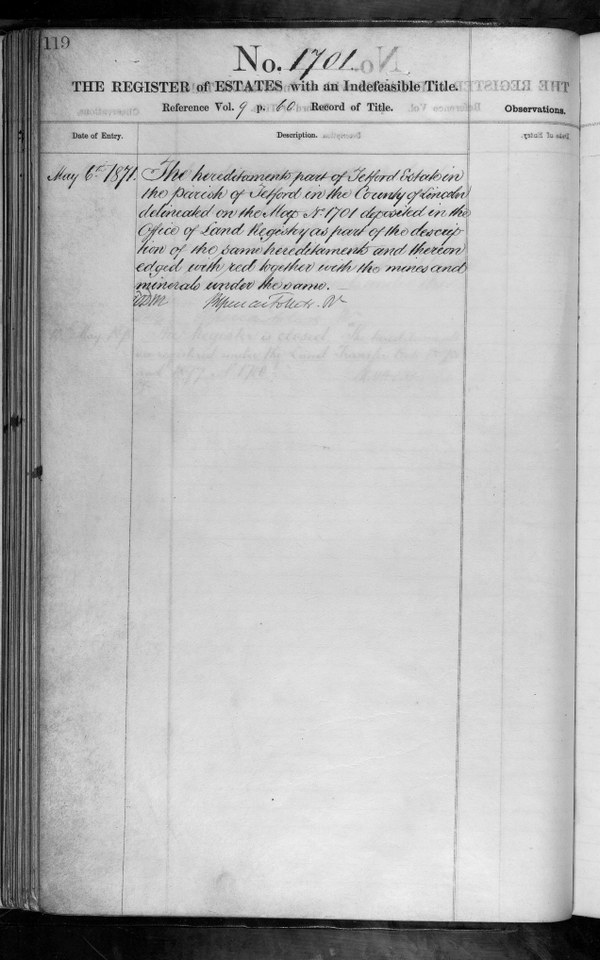 119
No. 1701.
THE REGISTER of ESTATES with an Indefeasible Title.
Reference Vol. 9 p. 60 Record of Title.
Observations.
Date of Entry.
Description.
May 6th 1871.
The hereditaments part of Tetford Estate in
the parish of Tetford in the County of Lincoln
delineated on the Map No. 1701 deposited in the
Office of Land Registry as part of the descrip-
tion of the same hereditaments and thereon
edged with red together with the mines and
minerals under the same.